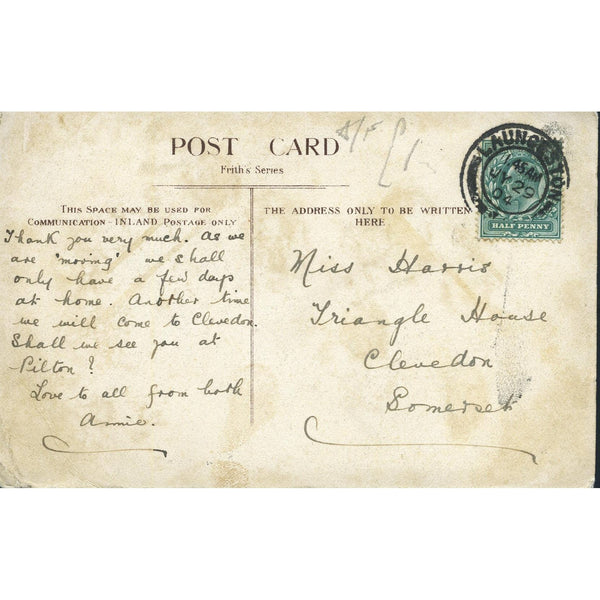 POST CARD
Frith's Series
A/F
THIS SPACE MAY BE USED FOR
COMMUNICATION - INLAND POSTAGE ONLY
THE ADDRESS ONLY TO BE WRITTEN
HERE
Thank you very much. As we
are 'moving' we shall
only have a few days
at home. Another time
we will come to Clevedon.
Shall we see you at
Pilton?
Love to all from both
Annie.
Miss Harris
Triangle House
Clevedon
Somerset
LAUNCESTON
AM
20
HALF PENNY